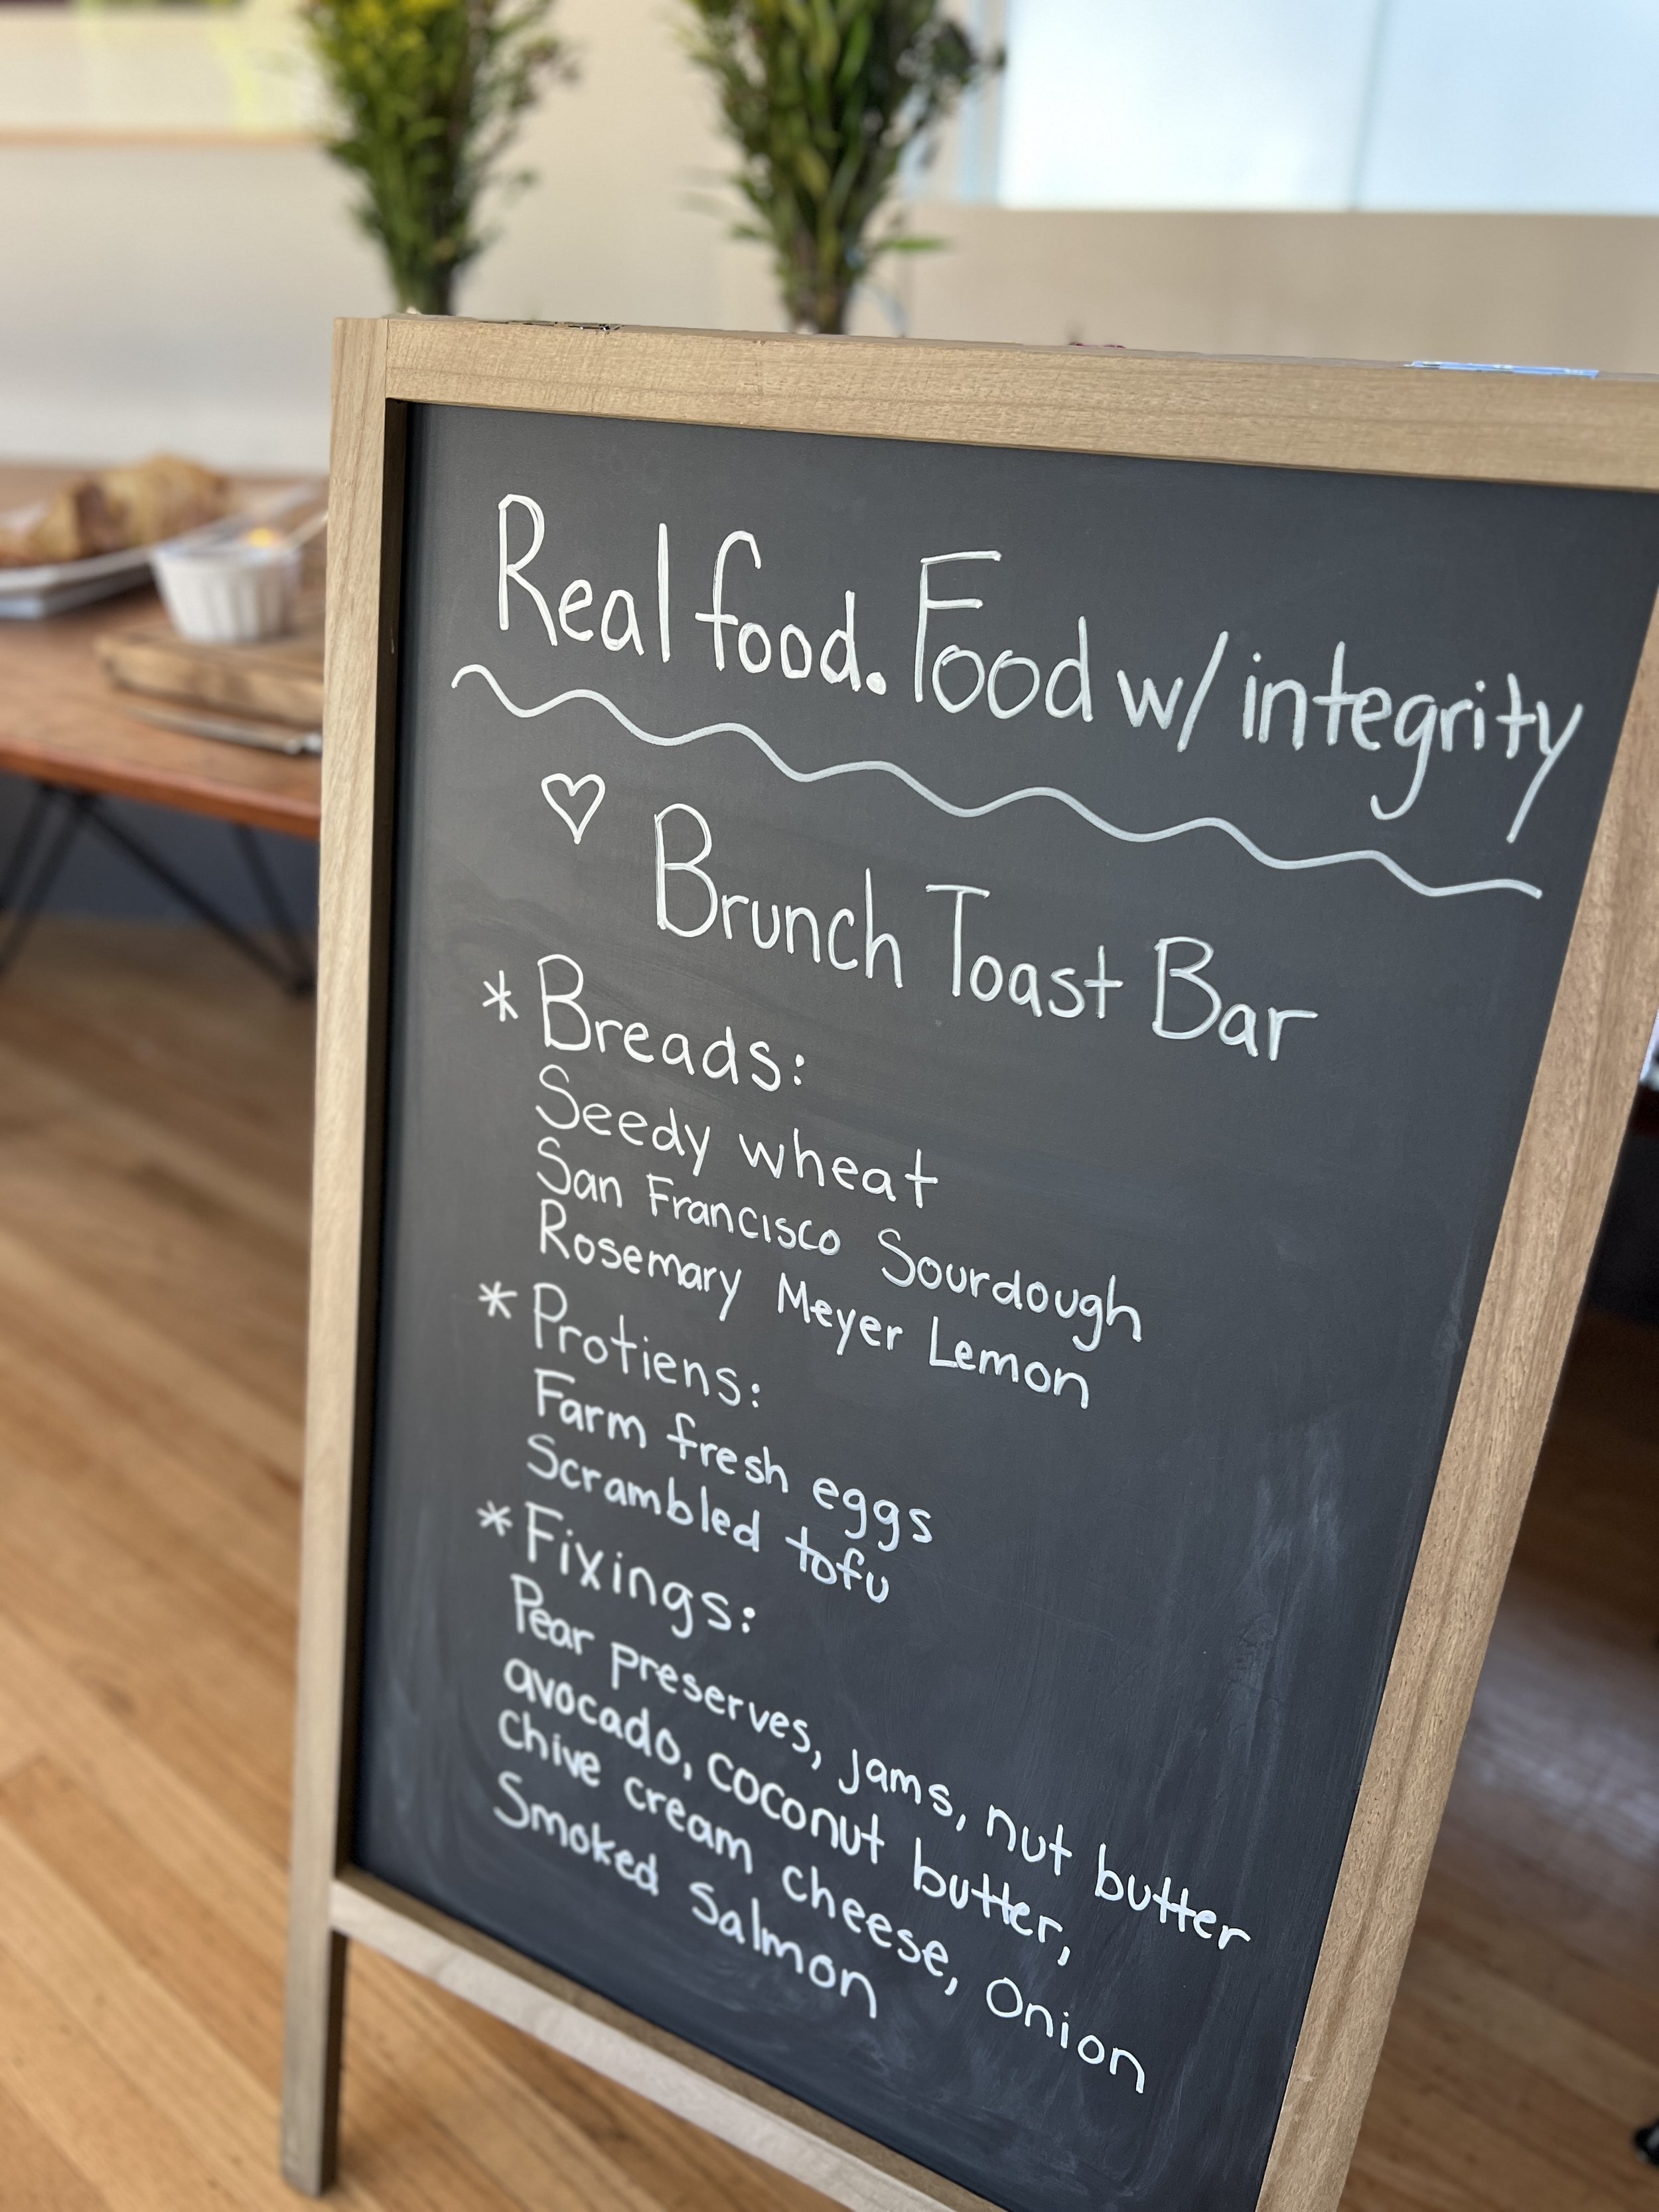 Real food. Food w/ integrity
Brunch Toast Bar
* Breads:
Seedy wheat
San Francisco Sourdough
Rosemary Meyer Lemon
* Protiens:
Farm fresh eggs
Scrambled tofu
* Fixings:
Pear preserves, jams, nut butter
avocado, coconut butter,
Chive cream cheese, Onion
Smoked Salmon